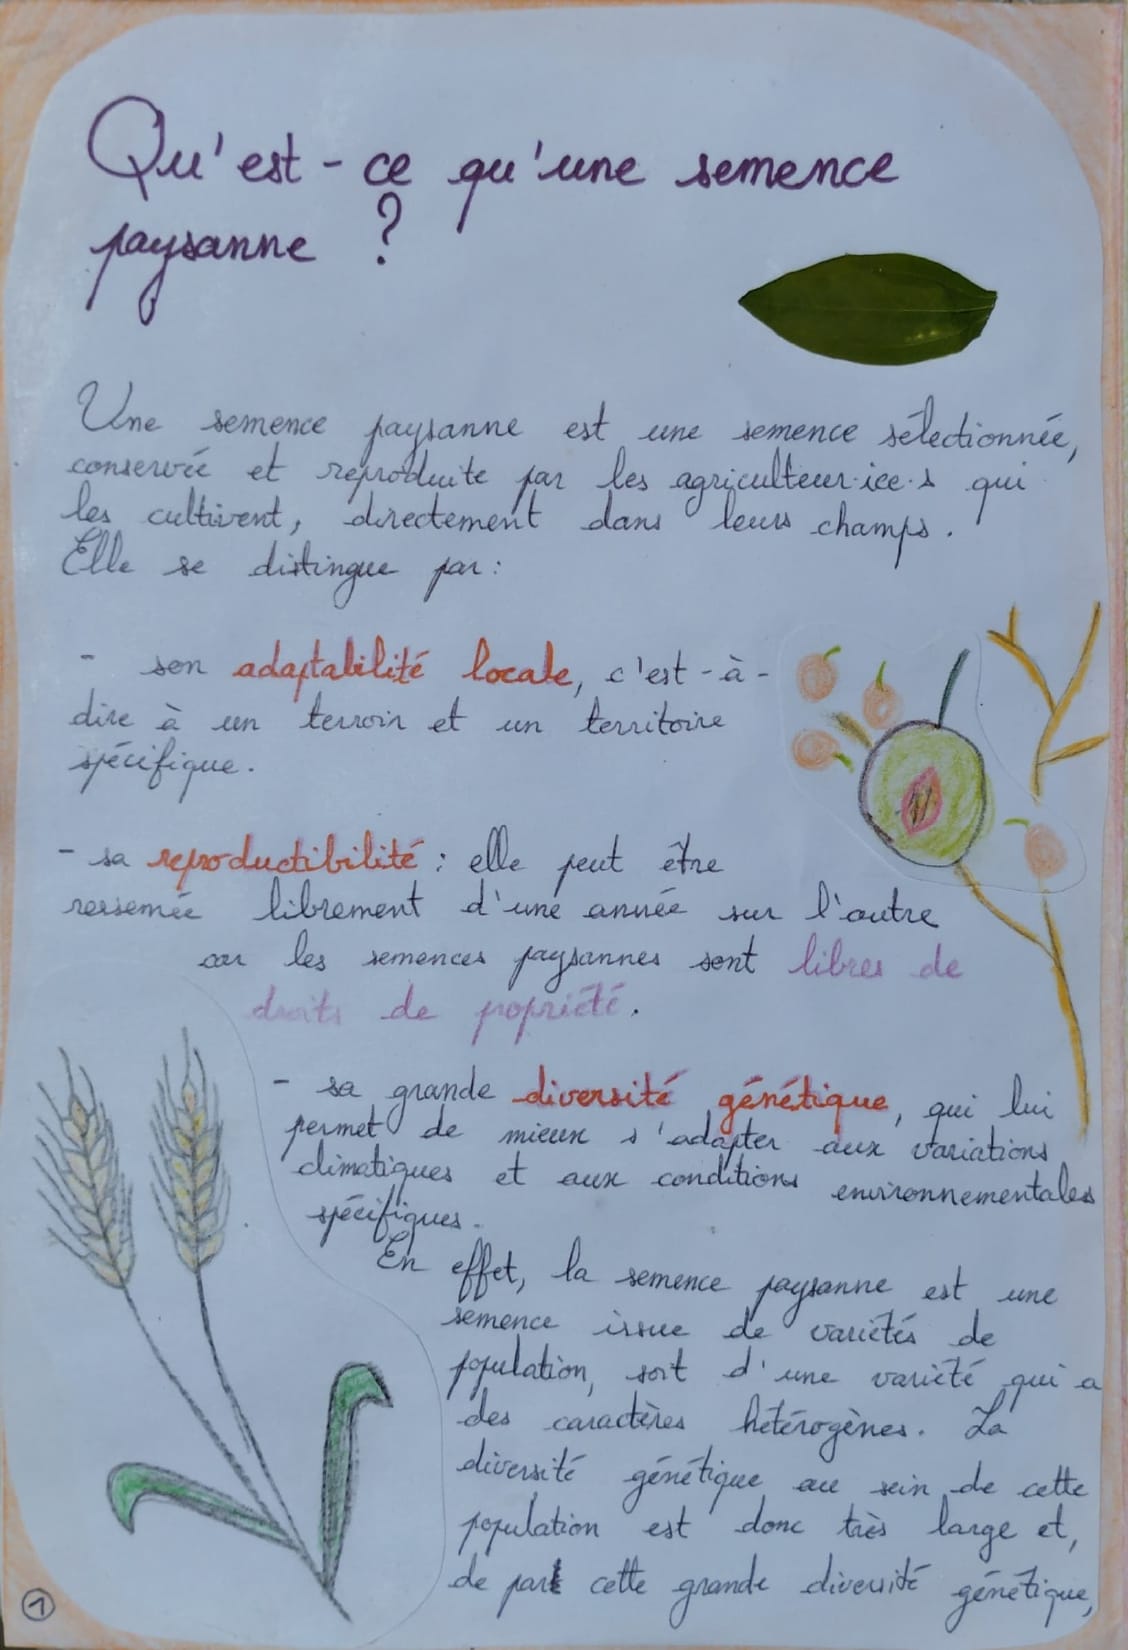 Qu'est-ce qu'une semence
paysanne ?
Une semence paysanne est une semence sélectionnée,
conservée et reproduite par les agriculteur·ice·s qui
les cultivent, directement dans leurs champs.
Elle se distingue par :
- son adaptabilité locale, c'est-à-
dire à un terroir et un territoire
spécifique.
- sa reproductibilité : elle peut être
ressemée librement d'une année sur l'autre
car les semences paysannes sont libres de
droits de propriété.
- sa grande diversité génétique, qui lui
permet de mieux s'adapter aux variations
climatiques et aux conditions environnementales
spécifiques.
En effet, la semence paysanne est une
semence issue de variétés de
population, soit d'une variété qui a
des caractères hétérogènes. La
diversité génétique au sein de cette
population est donc très large et,
de part cette grande diversité génétique,
1